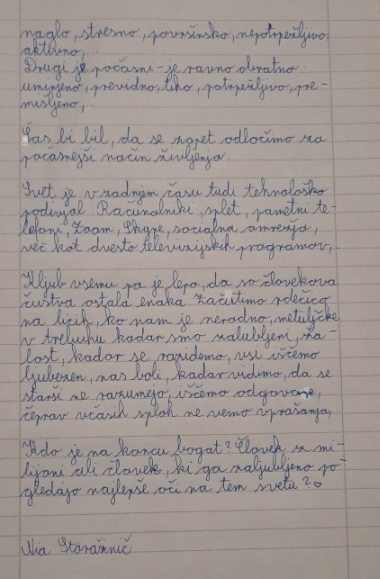 naglo, stresno, površinsko, nepotrpežljivo,
aktivno,
Drugi je počasni-je ravno obratno
umirjeno, previdno, tiho, potrpežljivo, pre-
mišljeno,
Čas bi bil, da se zopet odločimo za
počasnejši način življenja.
Svet je v zadnjem času tudi tehnološko
podivjal. Računalniki, splet, pametni te-
lefoni, Zoom, Skype, socialna omrežja,
več kot dvesto televizijskih programov,
Kljub vsemu pa je lepo, da so človekova
čustva ostala enaka. Začutimo rdečico
na licih, ko nam je nerodno, metuljčke
v trebuhu kadar smo zaljubljeni, ža-
lost, kadar se razidemo, vsi iščemo
ljubezen, nas boli, kadar vidimo, da se
starši ne razumejo, iščemo odgovore,
čeprav včasih sploh ne vemo vprašanja.
Kdo je na koncu bogat? Človek z mi-
lijoni ali človek, ki ga zaljubljeno po-
gledajo najlepše oči na tem svetu?
Nia